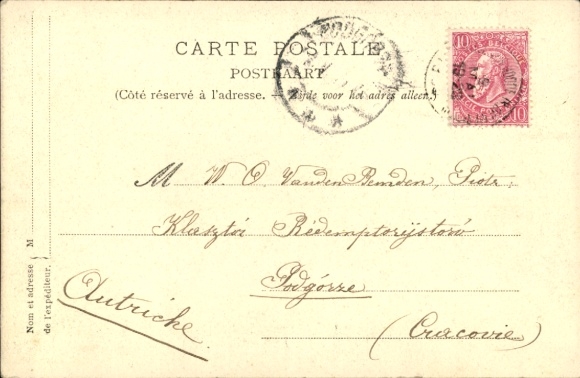 CARTE POSTALE
POSTKAART
(Côté réservé à l'adresse. — Zijde voor het adres alleen.)
10 10
M W. O. Vanden Bemden, Piotr;
Klasztór Rédemptorijstoró
Podgórze
(Cracovie)
Autriche
Nom et adresse } M
de l'expéditeur.